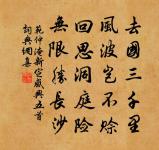 去國三千里
風波豈不賒
回思洞庭險
無限勝長沙
范仲淹新定感興五首
詞典網集